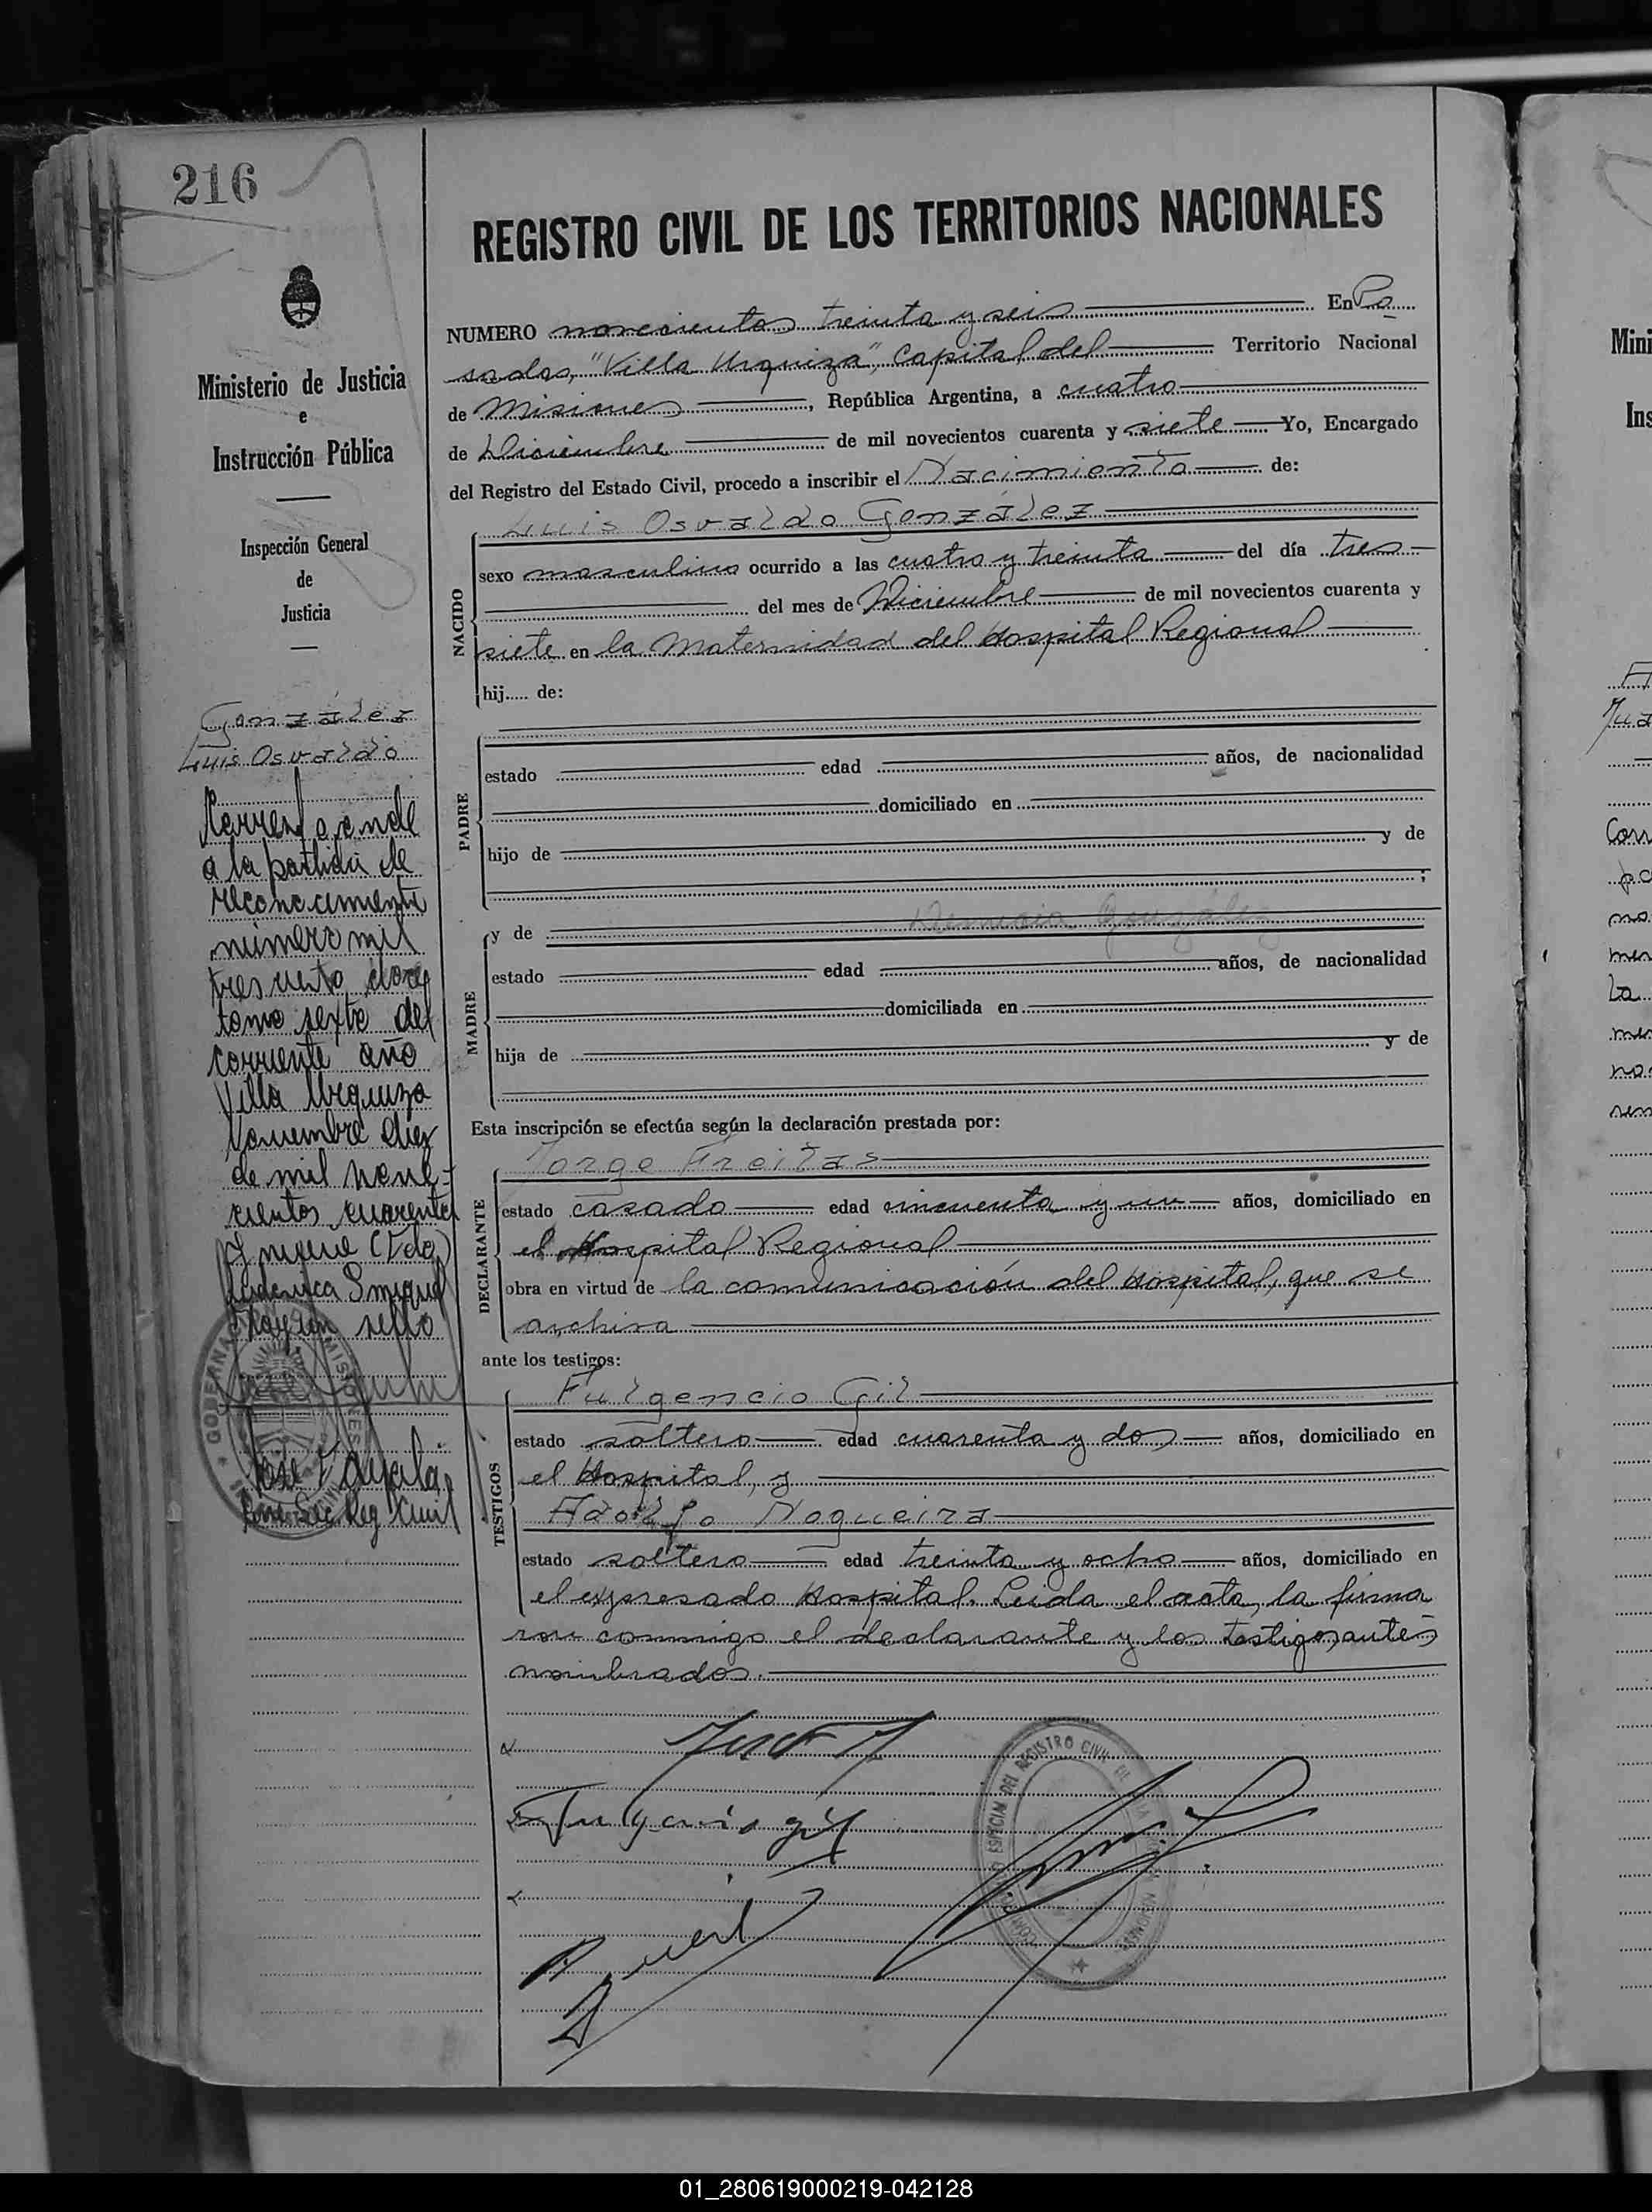 216
REGISTRO CIVIL DE LOS TERRITORIOS NACIONALES
Ministerio de Justicia
e
Instrucción Pública
Inspección General
de
Justicia
González
Luis Osvaldo
Corresponde
a la partida de
reconocimiento
número mil
doce
tomo sexto del
corriente año
Villa Urquiza
Noviembre diez
de mil nove-
cientos cuarenta
y nueve (Fdo)
sello
José
Sec. Reg. Civil
NUMERO novecientos treinta y seis En Po
sadas, "Villa Urquiza", Capital del Territorio Nacional
de Misiones, República Argentina, a cuatro
de Diciembre de mil novecientos cuarenta y siete Yo, Encargado
del Registro del Estado Civil, procedo a inscribir el Nacimiento de:
Luis Osvaldo González
NACIDO
sexo masculino ocurrido a las cuatro y treinta del día tres
del mes de Diciembre de mil novecientos cuarenta y
siete en la Maternidad del Hospital Regional
hij..... de:
PADRE
estado edad años, de nacionalidad
domiciliado en
hijo de y de
;
MADRE
y de González
estado edad años, de nacionalidad
domiciliada en
hija de y de
Esta inscripción se efectúa según la declaración prestada por:
DECLARANTE
Jorge Freitas
estado casado edad cincuenta y un años, domiciliado en
el Hospital Regional
obra en virtud de la comunicación del Hospital, que se
archiva
ante los testigos:
TESTIGOS
Fulgencio Gil
estado soltero edad cuarenta y dos años, domiciliado en
el Hospital, y
Adolfo Nogueira
estado soltero edad treinta y ocho años, domiciliado en
el expresado Hospital. Leida el acta, la firma
ron conmigo el declarante y los testigos antes
nombrados.
Fulgencio Gil
01_280619000219-042128